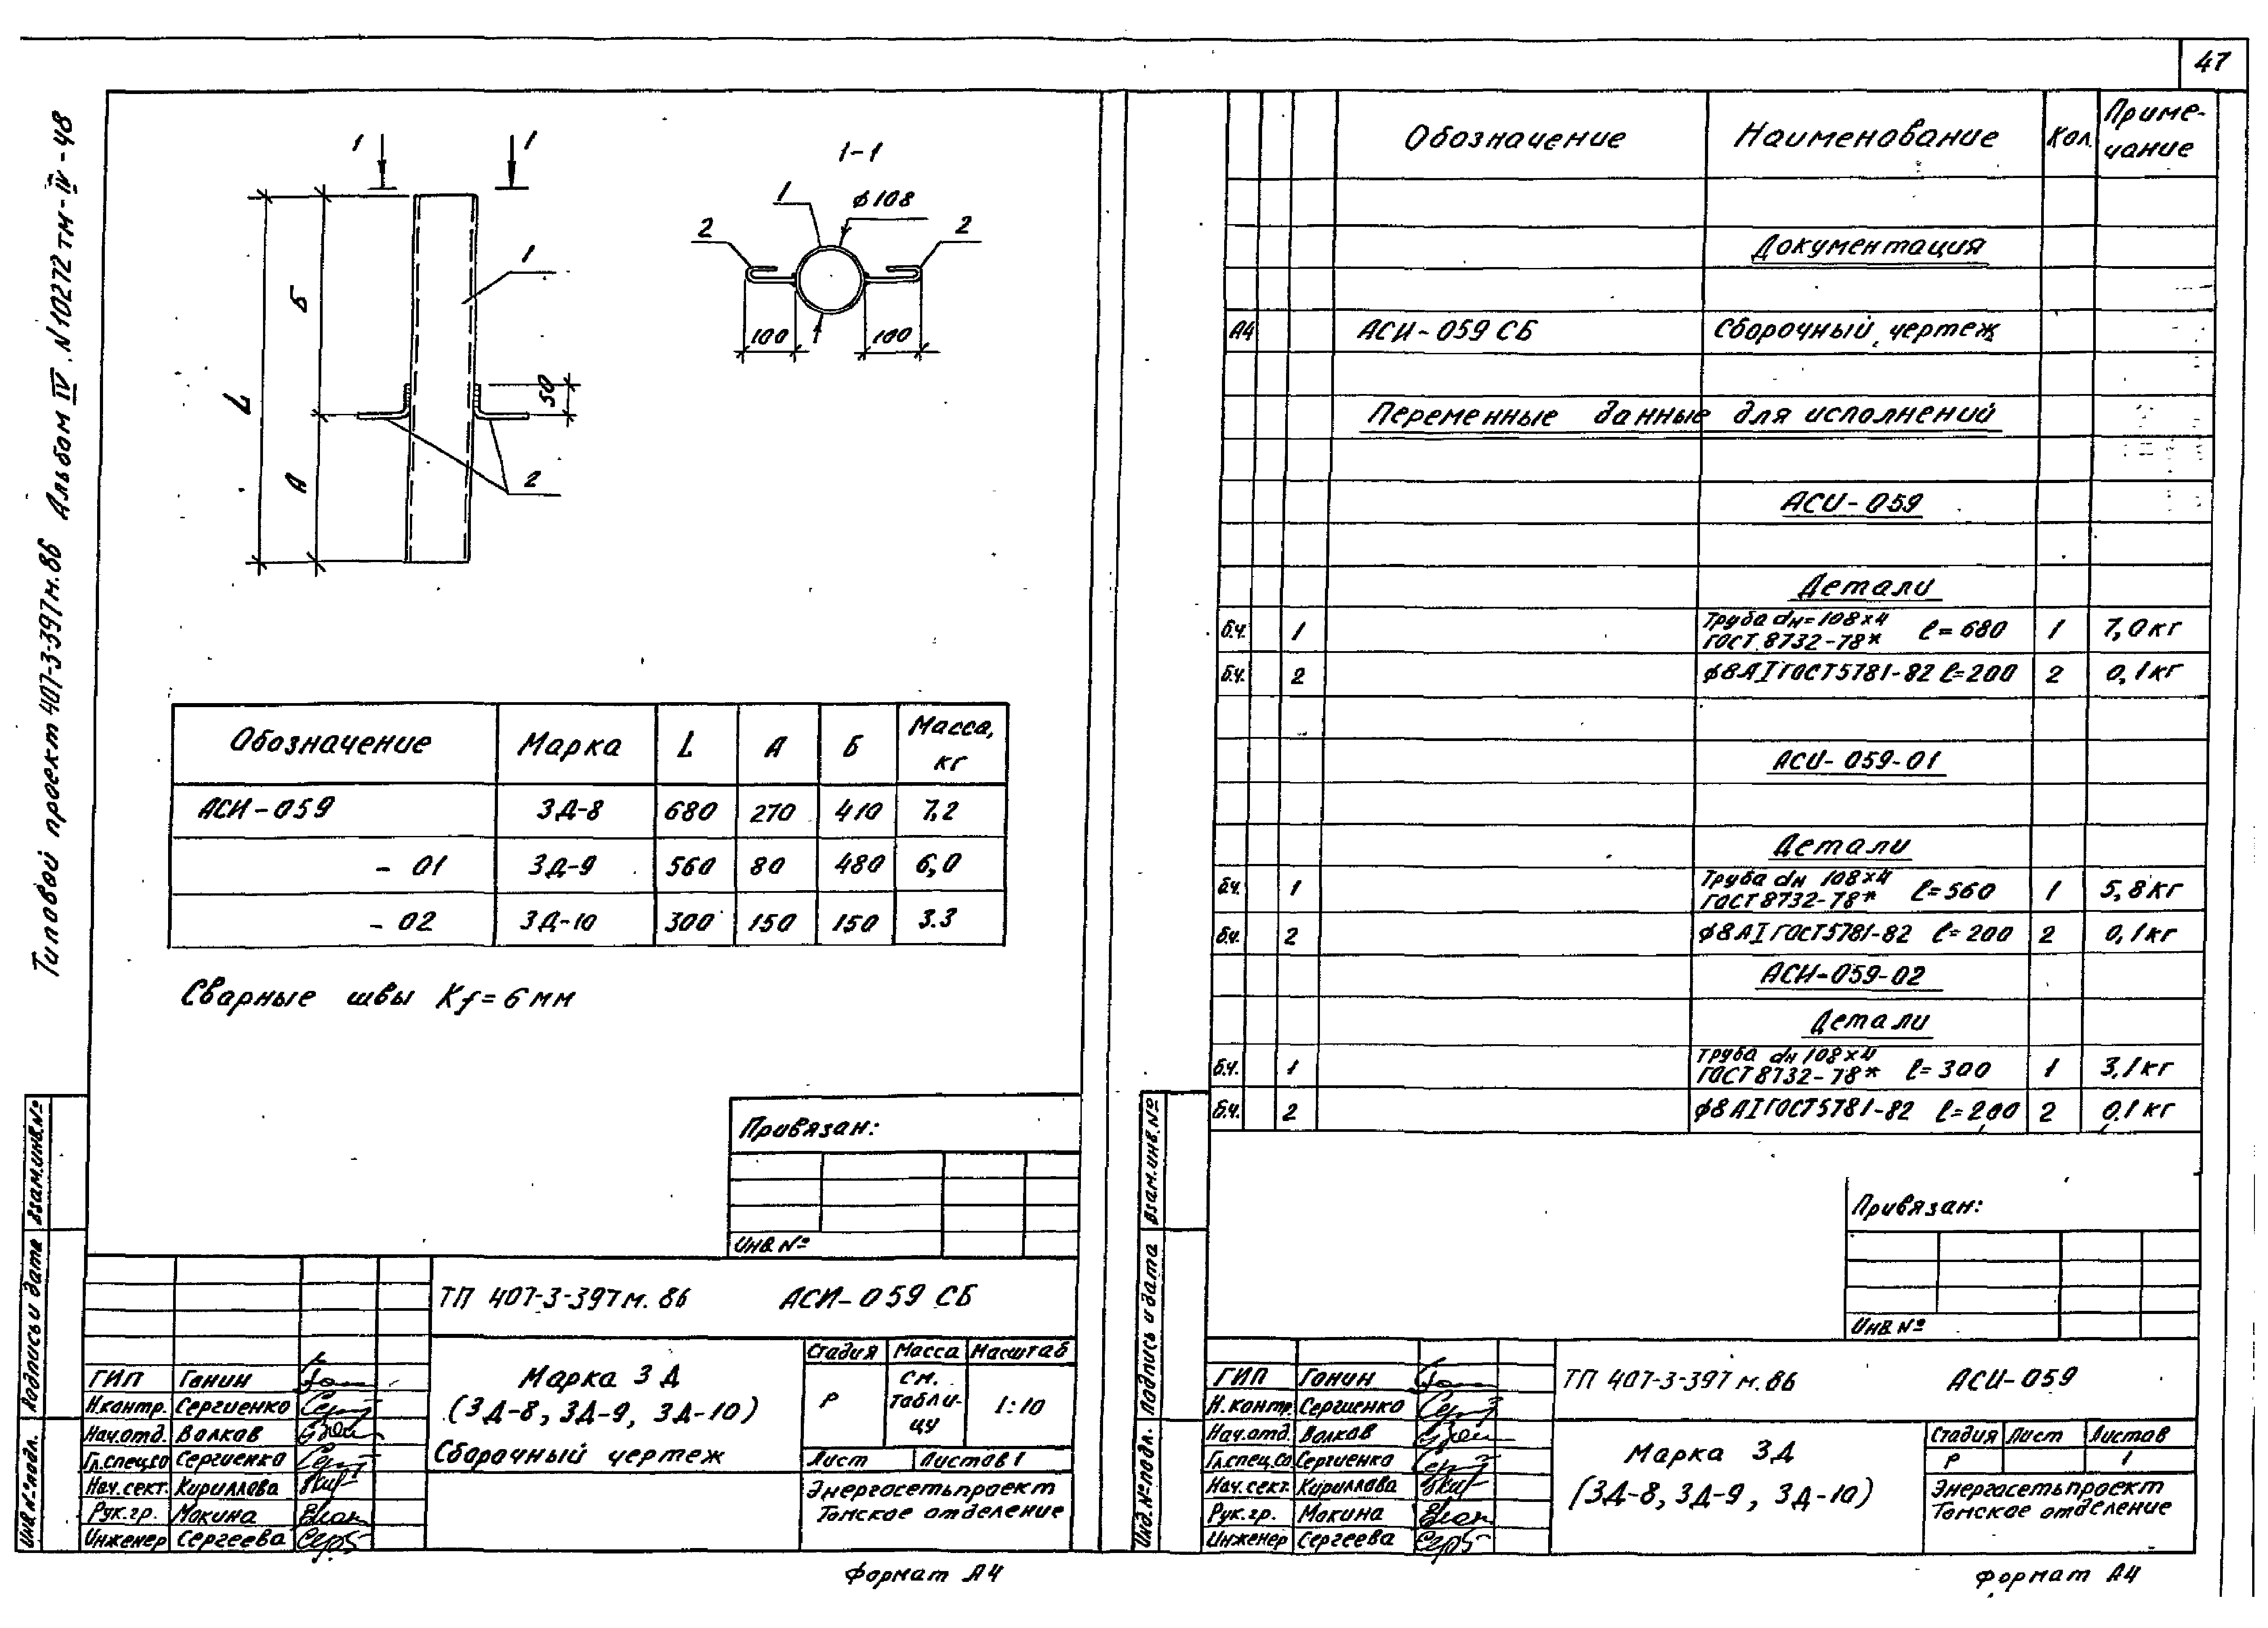 47
Типовой проект 407-3-397м.86 Альбом IV N10272 тм-IV-48
1 1
1-1
1
ф108
2 2
1
Б
L
А
50
2
100 100
Обозначение Марка L А Б Масса, кг
АСИ-059 ЗД-8 680 270 410 7,2
- 01 ЗД-9 560 80 480 6,0
- 02 ЗД-10 300 150 150 3.3
Сварные швы Kf=6мм
Привязан:
Инв №
ТП 407-3-397м.86 АСИ-059 СБ
Марка ЗД
(ЗД-8, ЗД-9, ЗД-10)
Сборочный чертеж
Стадия Масса Масштаб
Р см. табли-цу 1:10
Лист Листов 1
Энергосетьпроект
Томское отделение
ГИП Ганин
Н.контр. Сергиенко
Нач.отд. Волков
Гл.спец.со Сергиенко
Нач.сект. Кириллова
Рук.гр. Мокина
Инженер Сергеева
Взам.инв.№
Подпись и дата
Инв.№подл.
Формат А4
Обозначение Наименование Кол. Приме-чание
Документация
А4 АСИ-059 СБ Сборочный чертеж
Переменные данные для исполнений
АСИ-059
Детали
б.ч. 1 Труба dн=108×4 ГОСТ 8732-78* ℓ=680 1 7,0кг
б.ч. 2 ф8АI ГОСТ5781-82 ℓ=200 2 0,1кг
АСИ-059-01
Детали
б.ч. 1 Труба dн 108×4 ГОСТ8732-78* ℓ=560 1 5,8кг
б.ч. 2 ф8АI ГОСТ5781-82 ℓ=200 2 0,1кг
АСИ-059-02
Детали
б.ч. 1 Труба dн 108×4 ГОСТ8732-78* ℓ=300 1 3,1кг
б.ч. 2 ф8АI ГОСТ5781-82 ℓ=200 2 0,1кг
Привязан:
Инв №
ТП 407-3-397м.86 АСИ-059
Марка ЗД
(ЗД-8, ЗД-9, ЗД-10)
Стадия Лист Листов
Р 1
Энергосетьпроект
Томское отделение
ГИП Ганин
Н.контр. Сергиенко
Нач.отд. Волков
Гл.спец.со Сергиенко
Нач.сект. Кириллова
Рук.гр. Мокина
Инженер Сергеева
Взам.инв.№
Подпись и дата
Инд.№подл.
Формат А4